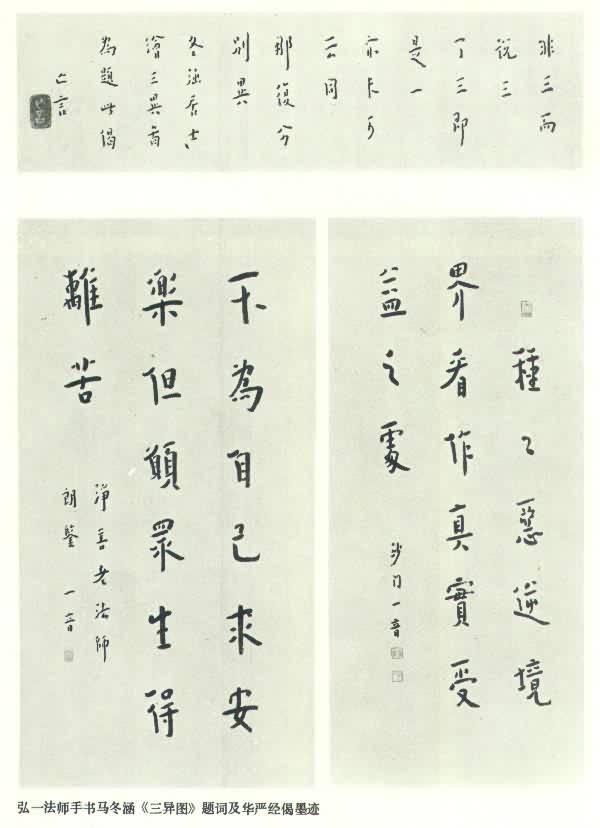 非三而
説三
了三即
是一
亦不可
云同
那復分
別異
冬涵居士
繪三異啚
為題此偈
亡言
種〻惡逆境
界看作真實受
益之處
沙门一音
不為自己求安
樂但願眾生得
離苦
淨善老法師
朗鑒 一音
弘一法师手书马冬涵《三异图》题词及华严经偈墨迹